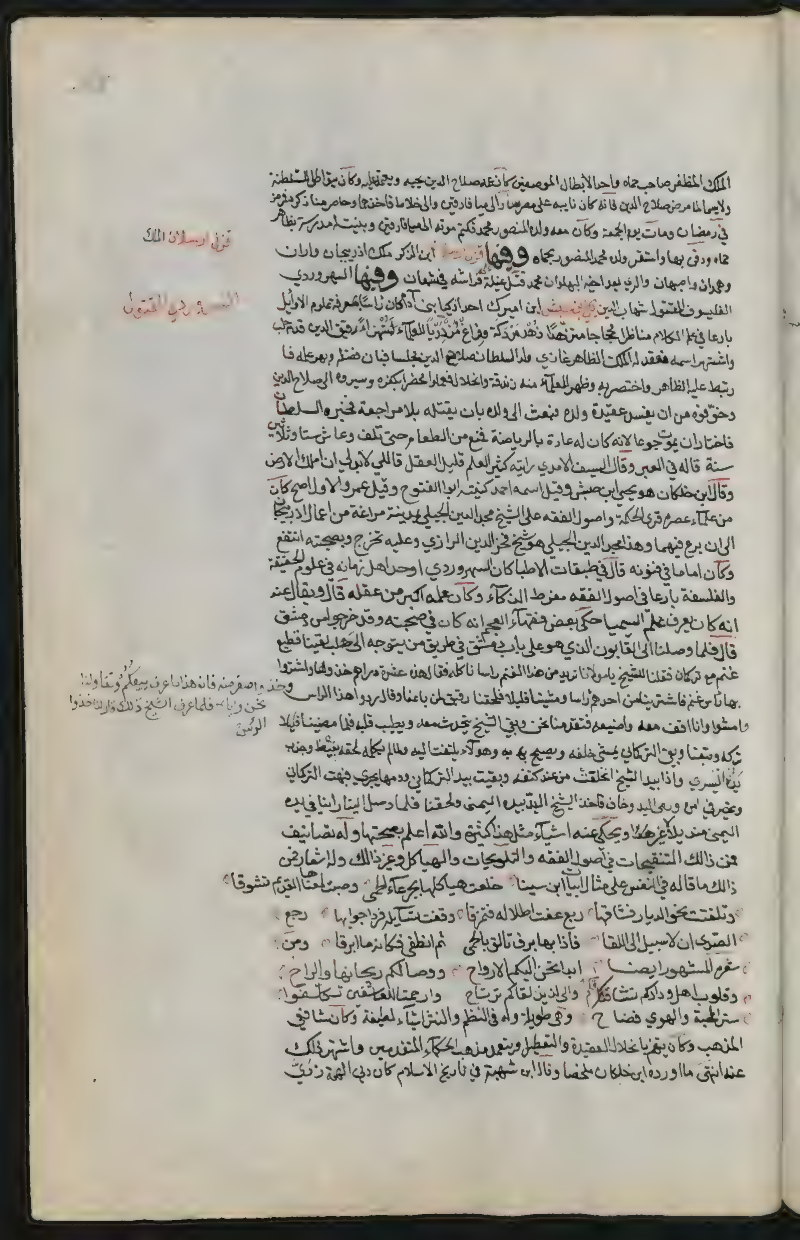 الملك المظفر صاحب حماه واحد الابطال الموصوفين كان عمه صلاح الدين يحبه و وكان السلطنة
ولا سيما لما مرض صلاح الدين فانه كان نايبه على مصر ميا فارقين والى خلاط فاخذها وحاصر
في رمضان ومات يوم الجمعة وكان معه ولده المنصور محمد فكتم موته الى ميافارقين وبنيت له مدرسة بظاهر
حماه ودفن بها واستقر ولده محمد المنصور بحماه وفيها قزل ارسلان ابن الدكز ملك اذربيجان واران
وهمدان واصبهان والرى بعد اخيه البهلوان محمد قتل غيلة على فراشه في شعبان وفيها السهروردي
الفليسوف المقتول شهاب الدين يحي بن حبش ابن اميرك احد اذكيا بني آدم كان راسا بمعرفة علوم الاوايل
بارعا في علم الكلام مناظرا محجاجا متزهدا زهد مزدكة وفراغ مزدريا للعلماء مستهزا رقيق الدين قدم حلب
واشتهر اسمه فعقد له الملك الظاهر غازي ولد السلطان صلاح الدين مجلسا فبان فضله وبهر علمه فا
رتبط عليه الظاهر واختص به وظهر للعلماء منه زندقة وانحلال فعملوا محضرا بكفره وسيروه الى صلاح الدين
وخوفوه من ان يفسد عقيدة ولده فبعث الى ولده بان يقتله بلا مراجعة فخيره السلطان
فاختار ان يموت جوعا لانه كان له عادة بالرياضة فمنع من الطعام حتى تلف وعاش ستا وثلاثين
سنة قاله في العبر وقال السيف الامدي رايته كثير العلم قليل العقل قال لي لابد لي ان املك الارض
وقال ابن خلكان هو يحيى ابن حبش وقيل اسمه احمد كنيته ابو الفتوح وقيل عمر والاول اصح كان
من علماء عصره قرى الحكمة واصول الفقه على الشيخ مجد الدين الجيلي بمدينة مراغة من اعمال اذربيجا
الى ان برع فيهما وهذا مجد الدين الجيلي هو شيخ فخر الدين الرازي وعليه تخرج وبصحبته انتفع
وكان اماما في فنونه قال في طبقات الاطبا كان السهروردي اوحد اهل زمانه في علوم الحقيقة
والفلسفة بارعا في اصول الفقه مفرط الذكاء وكان علمه اكبر من عقله قال ويقال عنه
انه كان يعرف علم السيميا حكى بعض فقهاء العجم انه كان في صحبته وقد خرجوا من دمشق
قال فلما وصلنا الى القابون الذي هو على باب دمشق في طريق من يتوجه الى حلب لقينا قطيع
غنم مع تركمان فقلنا للشيخ يا مولانا نريد من هذا الغنم راسا ناكله فقال هذه عشرة دراهم خذوها واشتروا
بها راس غنم فاشترينا من احدهم راسا ومشينا قليلا فلحقنا رفيق له باعنا وقال ردوا هذا الراس
وخذوا اصغر منه فان هذا ما عرف يبيعكم وتقاولنا
نحن واياه فلما عرف الشيخ ذلك قال لنا خذوا
الراس
وامشوا وانا اقف معه وارضيه فتقدمنا نحن وبقي الشيخ يتحدث معه ويطيب قلبه فلما مضينا قليلا
تركه وتبعنا وبقي التركماني يمشي خلفه ويصيح به وهو لا يلتفت اليه ولما لم يكلمه لحقه بغيظ وجذب
يده اليسرى واذا بيد الشيخ انخلعت من عند كتفه وبقيت بيد التركماني ودمها يجري فبهت التركماني
وتحير في امره ورمى اليد وخاف فاخذ الشيخ اليد بيده اليمنى ولحقنا فلما وصل الينا راينا في يده
اليمنى منديلا لا غير هكذا ويحكى عنه اشياء مثل هذا كثيرة والله اعلم بصحتها وله تصانيف
فمن ذالك التنقيحات في اصول الفقه والتلويحات والهياكل وغير ذالك وله اشعار فمن
ذالك ما قاله في النفس على مثال ابيات ابن سينا خلعت هياكلها بجرعاء الحمى وصبت لمغناها القديم تشوقا
وتلفتت نحو الديار فشاقها ربع عفت اطلاله فتمزقا وقفت تسايله فرد جوابها رجع
الصدى ان لا سبيل الى اللقا فاذا بها برق تالق بالحمى ثم انطفى فكانه ما ابرقا ومن
شعره المشهور ايضا ابدا تحن اليكم الارواح ووصالكم ريحانها والراح
وقلوب اهل ودادكم تشتاقكم والى لذيذ لقاكم ترتاح وارحمتا للعاشقين تكلفوا
ستر المحبة والهوى فضاح وهي طويلة وله في النظم والنثر اشياء لطيفة وكان شافعي
المذهب وكان يتهم بانحلال العقيدة والتعطيل ويعتمد مذهب الحكماء المتقدمين واشتهر ذلك
عنه انتهى ما اورده ابن خلكان ملخصا وقال ابن شهبة في تاريخ الاسلام كان دنى الهمة زري
قزل ارسلان الملك
السهروردي المقتول